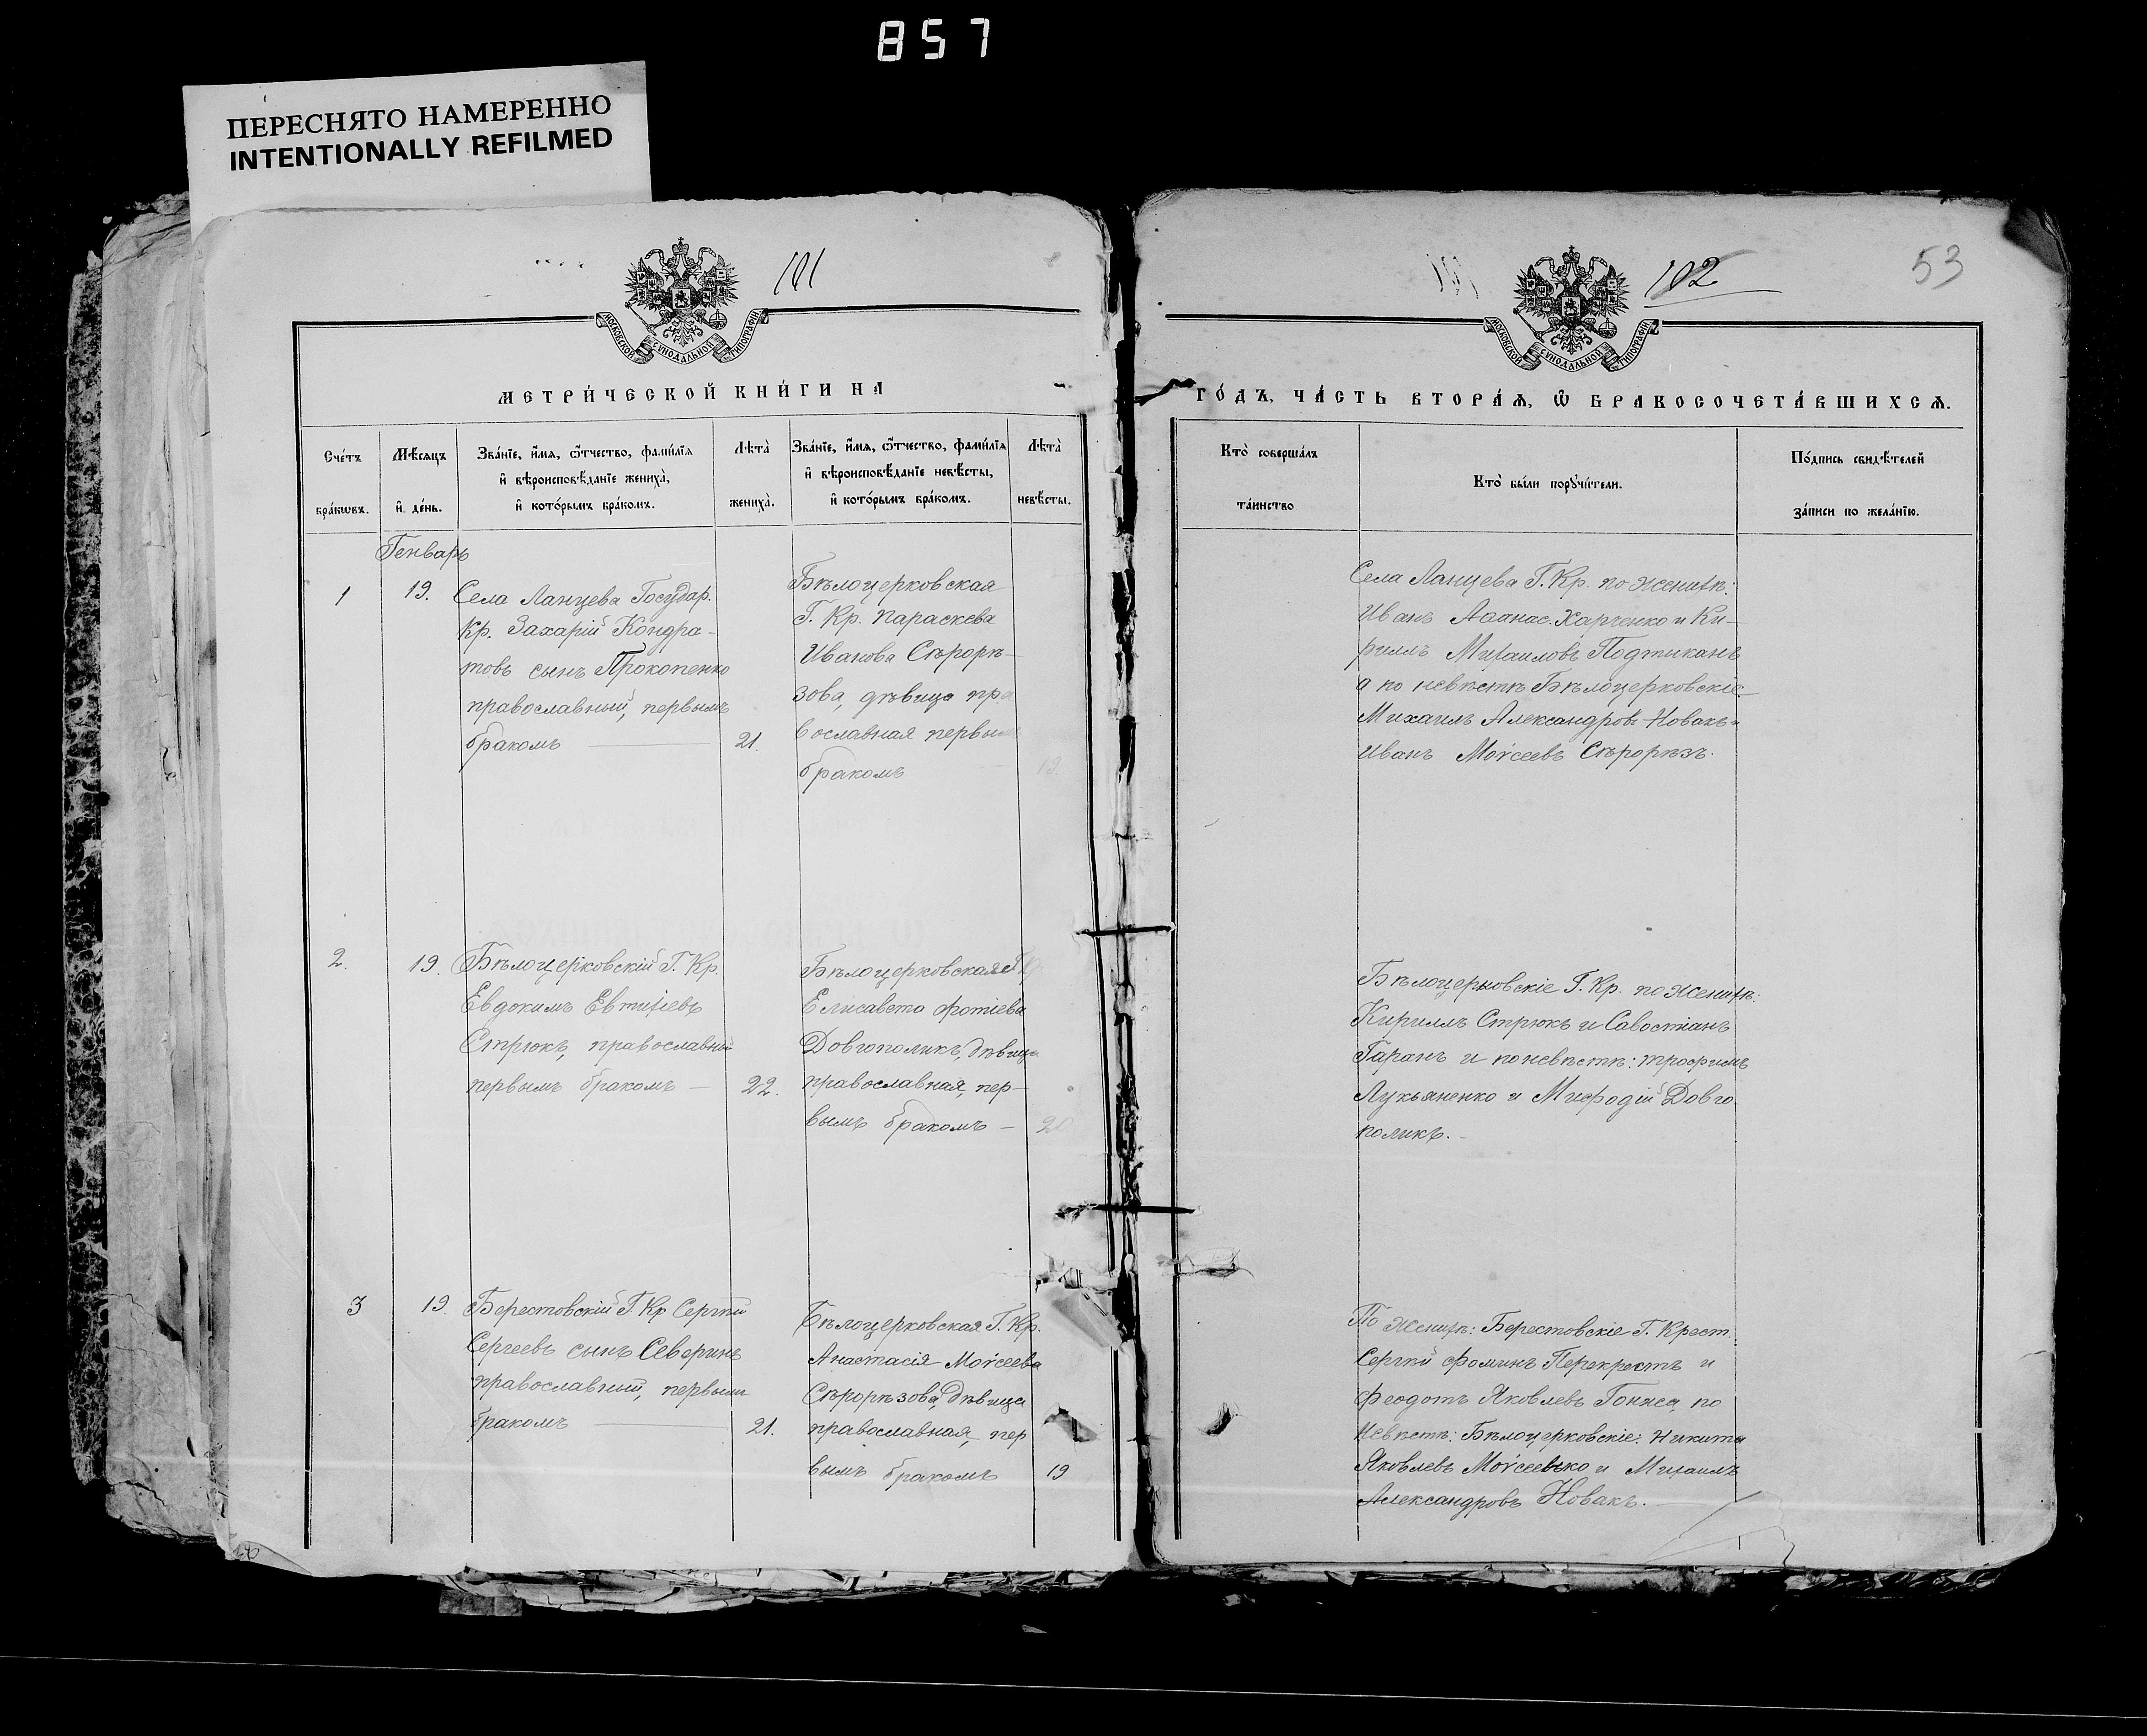 857
ПЕРЕСНЯТО НАМЕРЕННО
INTENTIONALLY REFILMED
101
МОСКОВСКОЙ СѴНОДАЛЬНОЙ ТИПОГРАФІИ
МЕТРИ́ЧЕСКОЙ КНИ́ГИ НА
Сче́тъ бра́кѡвъ.
Мѣ́сяцъ и҆ де́нь.
Зва́нїе, и҆́мѧ, ѻ҆́тчество, фами́лїѧ
и҆ вѣроисповѣ́данїе жениха̀,
и҆ кото́рымъ бра́комъ.
Лѣта̀ жениха̀.
Зва́нїе, и҆́мѧ, ѻ҆́тчество, фами́лїѧ
и҆ вѣроисповѣ́данїе невѣ́сты,
и҆ кото́рымъ бра́комъ.
Лѣта̀ невѣ́сты.
Генварь
1
19.
Села Ланцева Государ.
Кр. Захарій Кондра-
товъ сынъ Прокопенко
православный, первымъ
бракомъ
21.
Бѣлоцерковская
Г. Кр. Параскева
Иванова Сѣрорѣ-
зова, дѣвица пра
вославная первымъ
бракомъ
19.
2.
19.
Бѣлоцерковскій Г. Кр.
Евдокимъ Евтихіевъ
Стрюкъ, православный
первымъ бракомъ —
22.
Бѣлоцерковская Г. Кр.
Елисавета Фотіева
Довгополикъ, дѣвица
православная, пер-
вымъ бракомъ —
20
3
19.
Берестовскій Г. Кр Сергѣй
Сергеевъ сынъ Северинъ
православный, первымъ
бракомъ
21.
Бѣлоцерковская Г. Кр.
Анастасія Моѵсеева
Сѣрорѣзова, дѣвица
православная, пер
вымъ бракомъ
19
102
53
МОСКОВСКОЙ СѴНОДАЛЬНОЙ ТИПОГРАФІИ
ГО́ДЪ, ЧА́СТЬ ВТОРА́Ѧ, Ѡ҆ БРАКОСОЧЕТА́ВШИХСѦ.
Кто̀ соверша́лъ
та́инство
Кто̀ бы́ли порꙋчи́тели.
По́дпись свидѣ́телей
за́писи по жела́нїю.
Села Ланцева Г. Кр. по женихѣ:
Иванъ Аѳанас. Харченко и Ки-
риллъ Михаиловъ Подтиканъ
а по невѣстѣ Бѣлоцерковскіе
Михаилъ Александровъ Новакъ и
Иванъ Моѵсеевъ Сѣрорѣзъ.
Бѣлоцерковскіе Г. Кр. по женихѣ:
Кириллъ Стрюкъ и Савостіанъ
Гаранъ и по невѣстѣ: Трофимъ
Лукьяненко и Мифодій Довго
поликъ.
По женихѣ: Берестовскіе Г. Крест.:
Сергѣй Фоминъ Перекрестъ и
Феодотъ Яковлевъ по
невѣстѣ: Бѣлоцерковскіе: Никита
Яковлевъ Моѵсеенко и Михаилъ
Александровъ Новакъ.